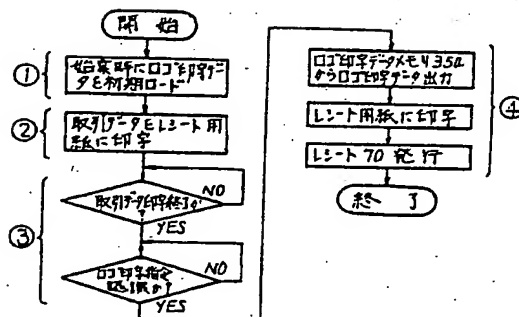 開始
①
始業時にロゴ印字デー
タを初期ロード
②
取引データをレシート用
紙に印字
③
取引データ印字終了か?
NO
YES
ロゴ印字指令
認識か?
NO
YES
ロゴ印字データメモリ35a
からロゴ印字データ出力
④
レシート用紙に印字
レシート70発行
終了